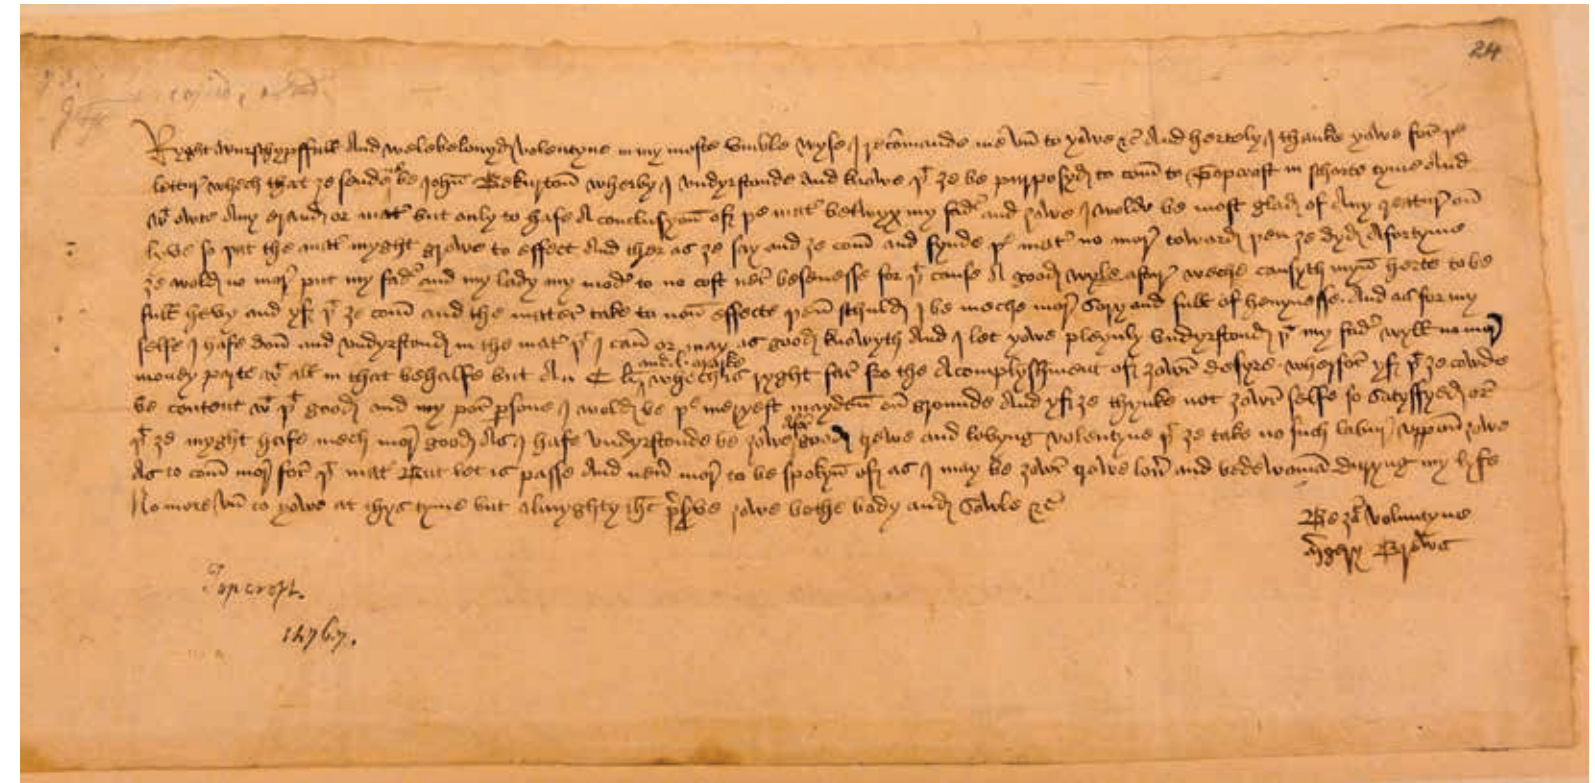 24
Ryght wurschypffull And welebelovyd volentyne in my moste vmble wyse I recomande me vn to yowe &c And hertely I thanke yowe for þe
lettur whech that ze sende me be John Bekurton wherby I vndyrstonde and knowe þt ze be purposyd to com to Topcroft in schorte tyme And
wt owte Any erand or mat' but only to hafe A conclusyon of þe mat' betwyx my fad' and zowe I wolde be most glad of Any creatur on
lyve so þat the mat' myght growe to effect And ther as ze say and ze com and fynde þe mat' no mor toward þen ze dyd Afortyme
ze wold no mor put my fad' and my lady my mod' to no cost ner besenesse for þt cause A good wyle aftyr weche causyth myn herte to be
full hevy and yf þt ze com and the mater take to non effecte þen schuld I be meche mor sory and full of hevynesse And as for my
selfe I hafe don and vndyrstond in the mat' þt I can or may as good knowyth And I let yowe pleynly vndyrstond þt my fad' wyll no mor
money parte wt all in that behalfe but An C li and l marke whech is ryght far fro the Acomplyshment of zowr desyre wherfor yf þt ze cowde
be content wt þt good and my por psone I wold be þe meryest mayden on grounde And yf ze thynke not zowr selfe so satysfyed or
þt ze myght hafe mech mor good As I hafe vndyrstonde be zowe afor good trewe and lovyng volentyne þt ze take no such labur vppon zowe
As to com mor for þt mat' But let is passe And never mor to be spokyn of as I may be zowr trewe lover and bedewoman duryng my lyfe
No more vn to yowe at thys tyme but Almyghty Jhc pserve zowe bothe body and sowle &c
Be zor Voluntyne
Mgery Brews
Topcroft.
1476.7.